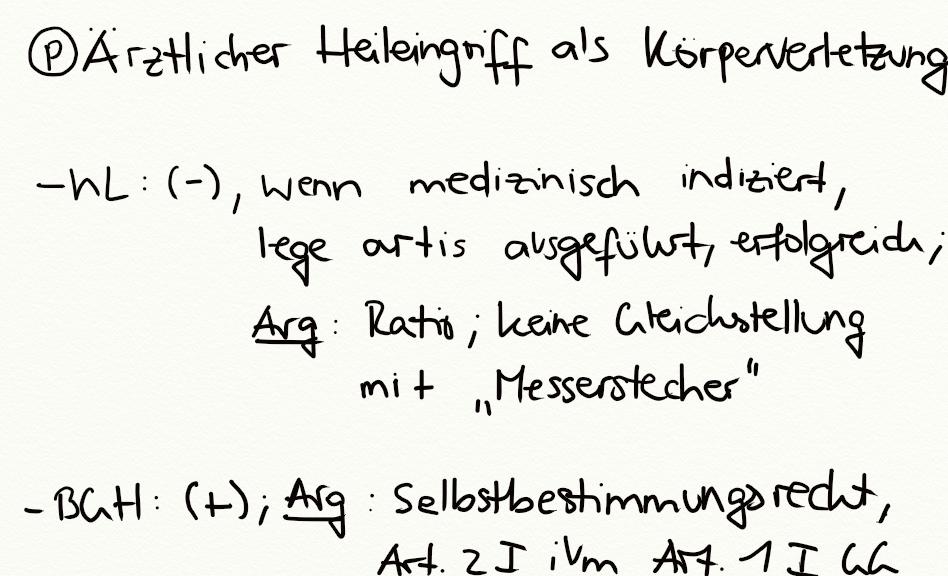 Ⓟ Ärztlicher Heileingriff als Körperverletzung
- hL: (-), wenn medizinisch indiziert,
lege artis ausgeführt, erfolgreich;
Arg: Ratio; keine Gleichstellung
mit „Messerstecher"
- BGH: (+); Arg: Selbstbestimmungsrecht,
Art. 2 I iVm Art. 1 I GG